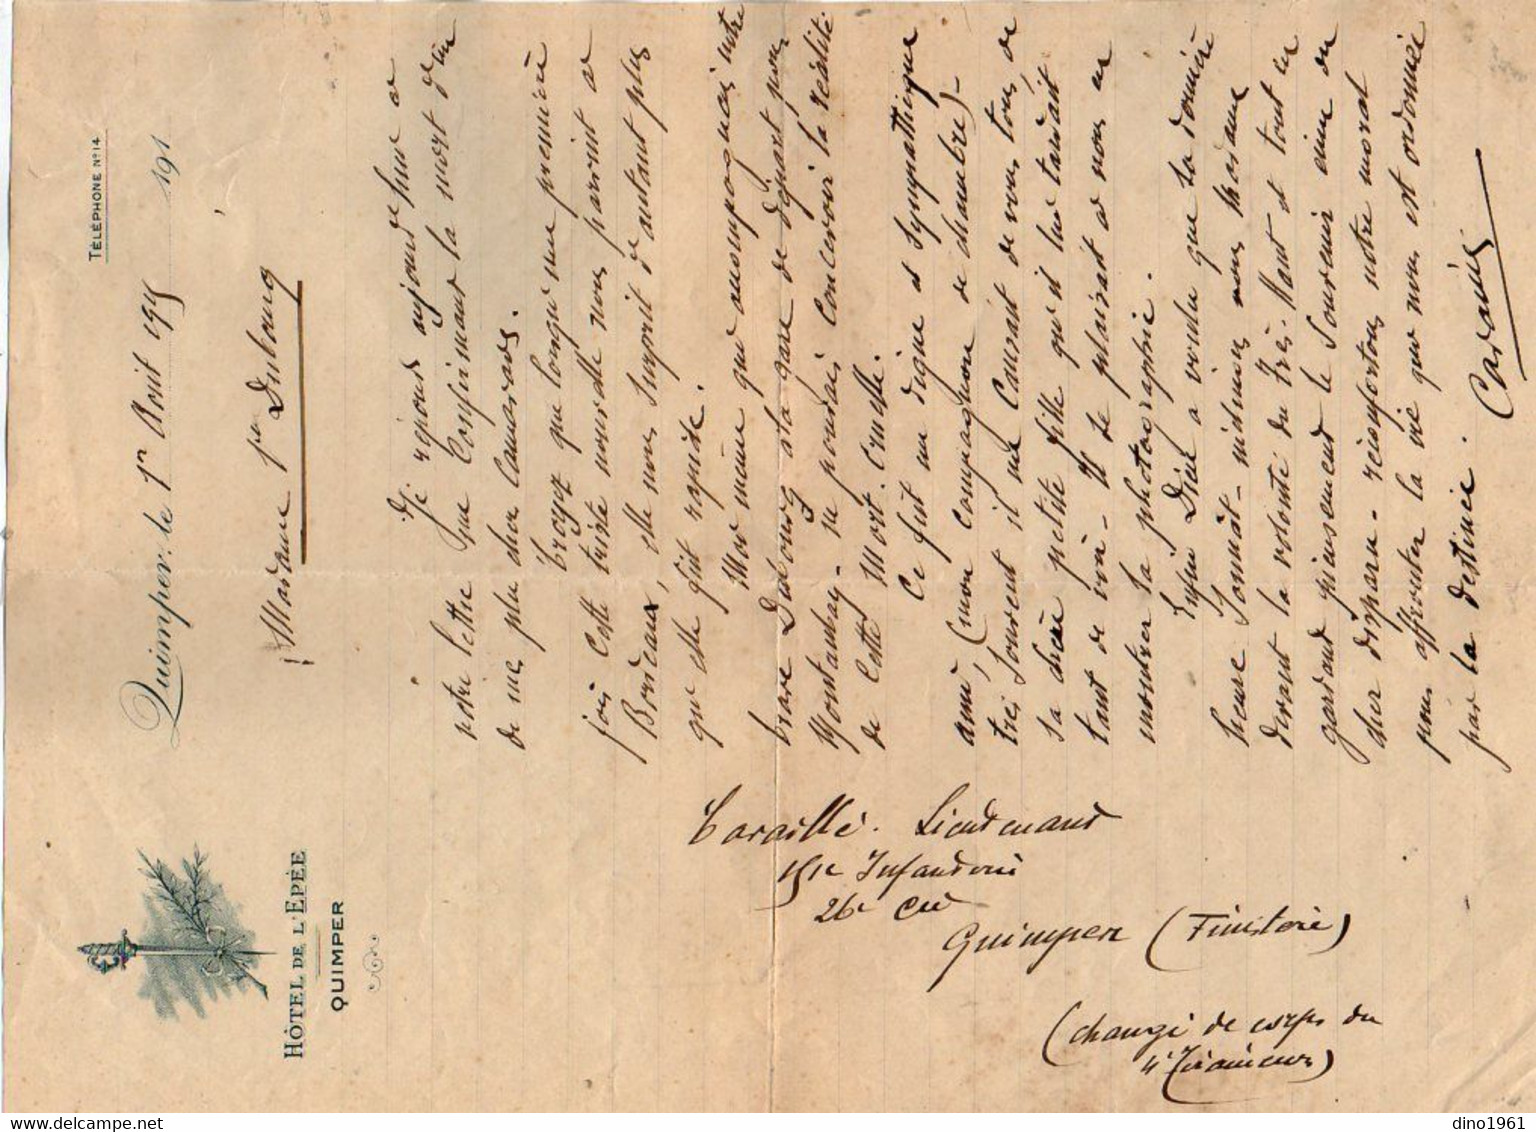 HÔTEL DE L'ÉPÉE
QUIMPER
TÉLÉPHONE Nº 14
Quimper, le 1r Août 1915 191
Madame Vve Dubourg
Je réponds aujourd'hui à
votre lettre me confirmant la mort d'un
de mes plus cher Camarades.
Croyez que lorsqu'une première
fois cette triste nouvelle nous parvint à
Bordeaux, elle nous surprit d'autant plus
qu'elle fut rapide.
Moi même qui accompagnais votre
brave Dubourg à la gare de départ pour
Montauban - ne pouvais concevoir la réalité
de cette Mort Cruelle.
Ce fut un digne et sympathique
ami, (mon compagnon de chambre) -
très souvent il me causait de vous tous, de
sa chère petite fille qu'il lui tardait
tant de voir - Il se plaisait à nous en
montrer la photographie.
Enfin Dieu a voulu que sa dernière
heure sonnât - inclinons nous Madame
devant la volonté du Très-Haut et tout en
gardant pieusement le souvenir ému du
cher disparu - réconfortons notre moral
pour affronter la vie que nous est ordonnée
par la destinée.
Lieutenant
Infanterie
26e Cie
Quimper (Finistère)
(changé de corps du
4e Tirailleurs)
dino1961